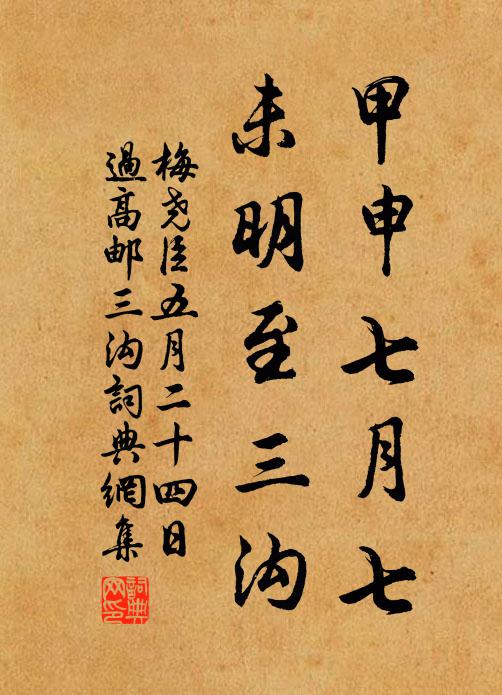 甲申七月七
未明至三沟
梅尧臣五月二十四日
過高邮三沟詞典網集
詞典
网印